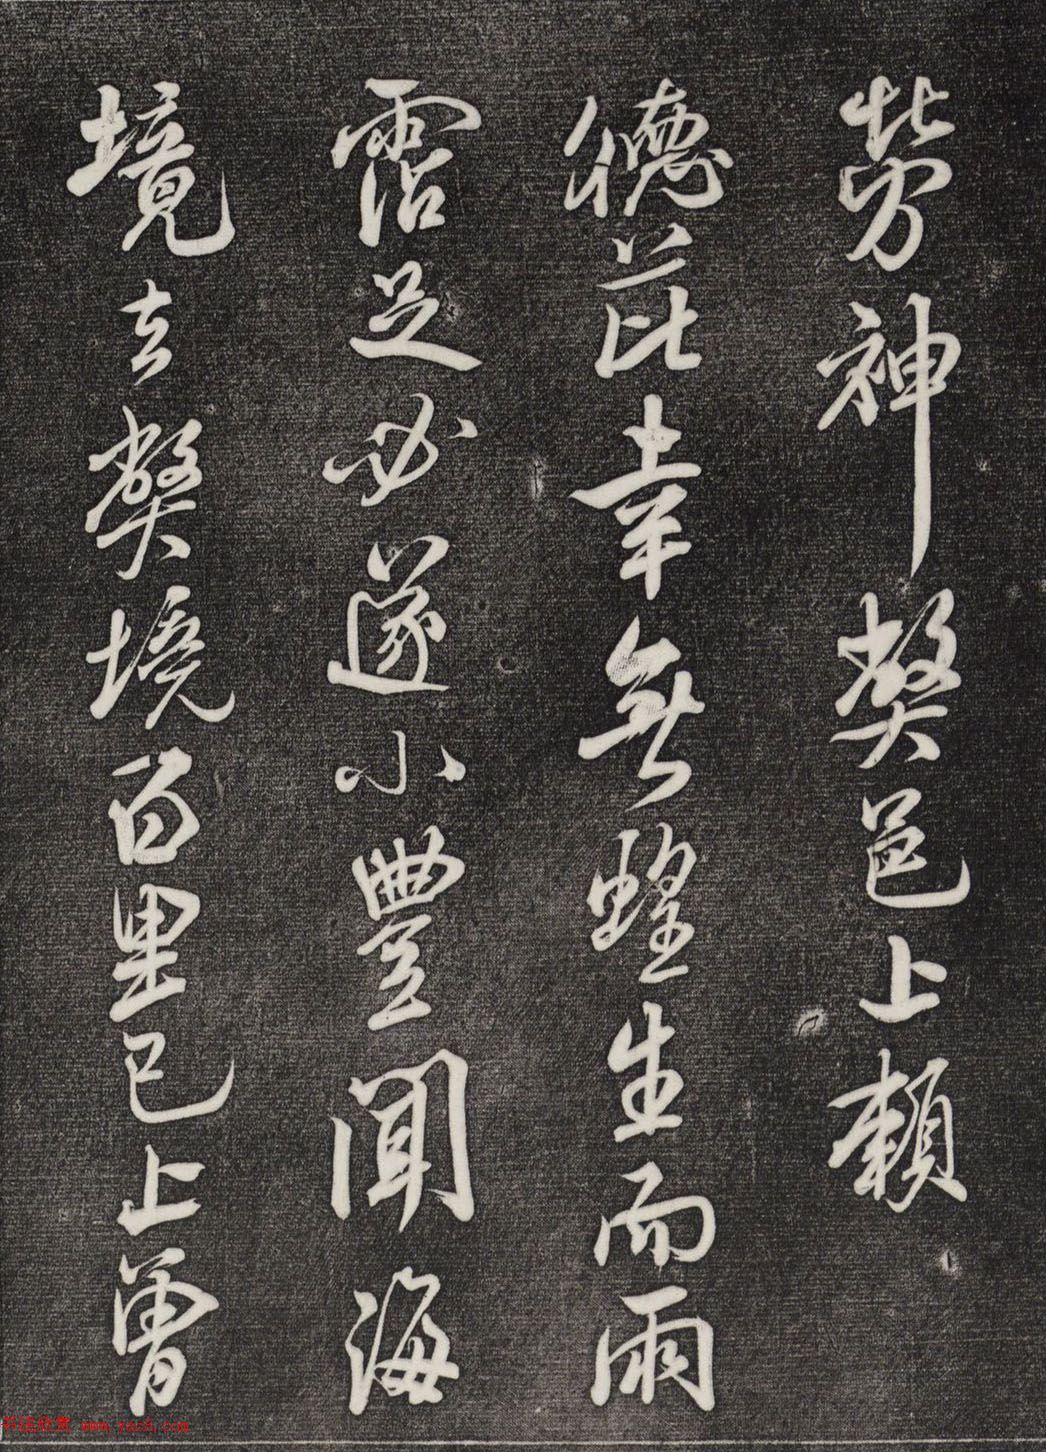 勞神獘邑上頼
德芘幸無蝗生而雨
霑足必遂小豐聞海
境去獘境百里已上曾
书法欣赏 www.yac8.com